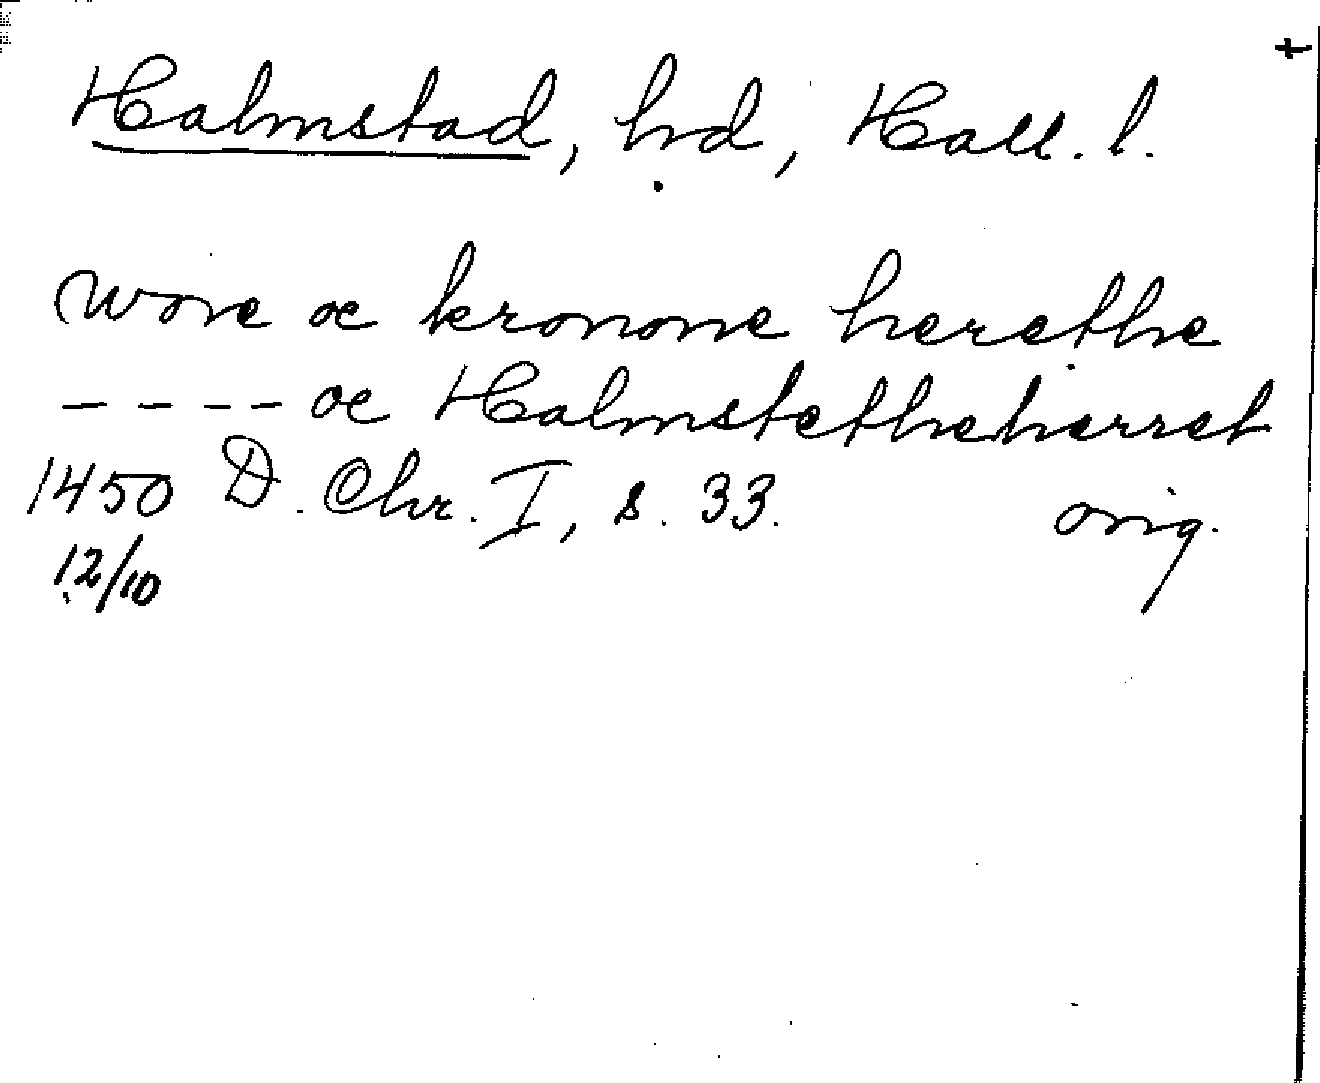 +
Halmstad, hd, Hall. l.
wore oc kronone herethe
- - - - oc Halmstetheherret
1450 D. Chr. I, s. 33. orig.
12/10